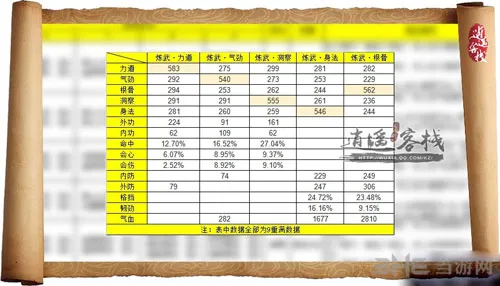 炼武·力道 炼武·气劲 炼武·洞察 炼武·身法 炼武·根骨
力道 583 275 299 281 282
气劲 292 540 273 253 229
根骨 294 253 262 244 562
洞察 291 291 555 261 236
身法 281 260 259 546 244
外功 224 91 161
内功 62 109 62
命中 12.70% 16.52% 27.04%
会心 6.07% 8.95% 9.37%
会伤 2.52% 8.92% 9.10%
内防 74 229 249
外防 79 247 306
格挡 24.72% 23.48%
韧劲 16.16% 9.15%
气血 282 1677 2810
注：表中数据全部为9重满数据
逍遥客栈
当游网